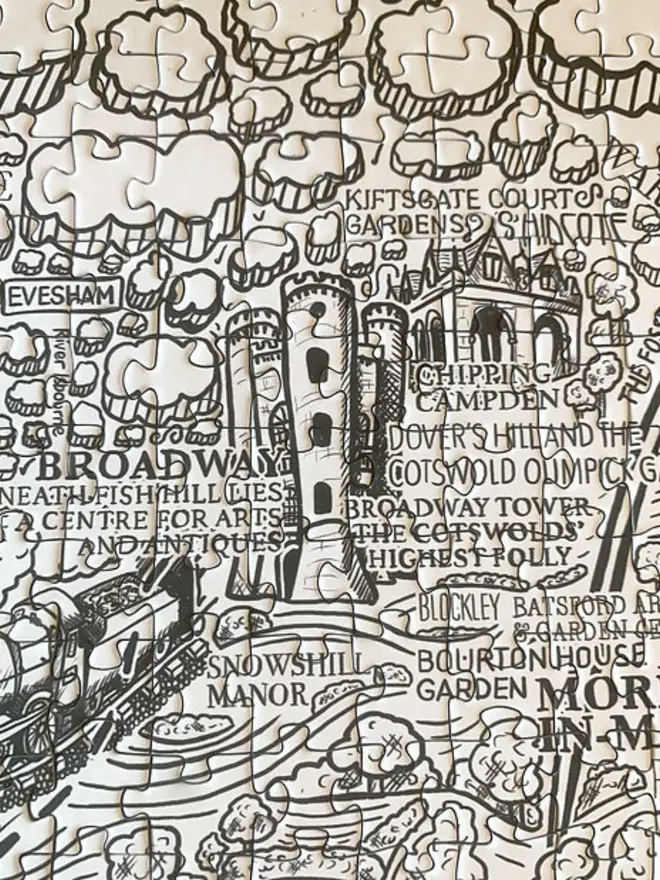 KIFTSGATE COURT
GARDENS & HIDCOTE
EVESHAM
River Isbourne
CHIPPING
CAMPDEN
THE FOSS
DOVER'S HILL AND THE
COTSWOLD OLIMPICK G
BROADWAY
NEATH FISH HILL LIES
A CENTRE FOR ARTS
AND ANTIQUES
BROADWAY TOWER
THE COTSWOLDS'
HIGHEST FOLLY
BLOCKLEY
BATSFORD AR
& GARDEN CE
SNOWSHILL
MANOR
BOURTON HOUSE
GARDEN
MOR
IN-M